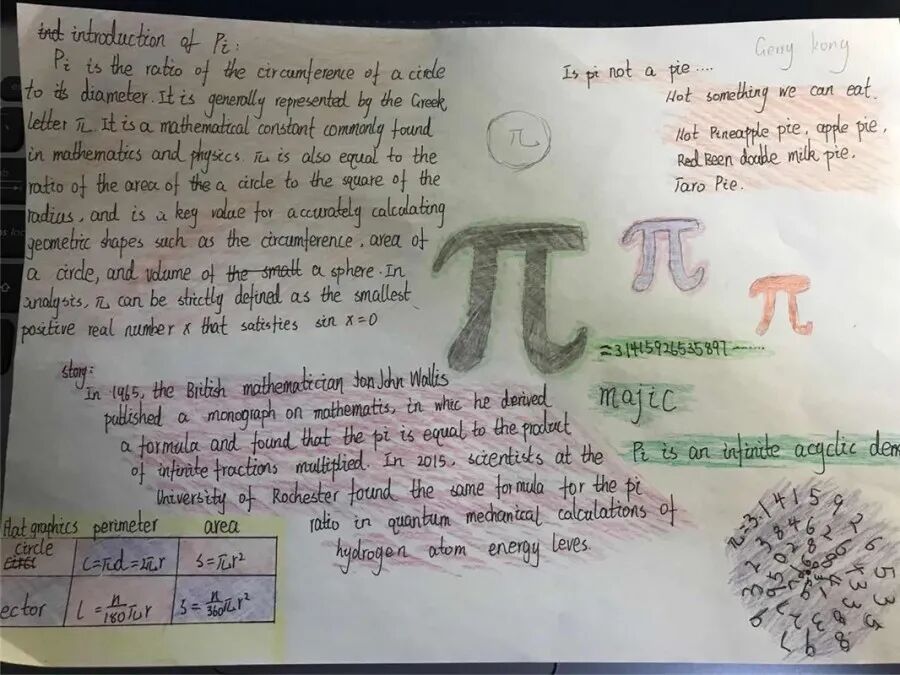 ind introduction of Pi:
Pi is the ratio of the circumference of a circle
to its diameter. It is generally represented by the Greek
letter π. It is a mathematical constant commonly found
in mathematics and physics. π is also equal to the
ratio of the area of the a circle to the square of the
radius, and is a key value for accurately calculating
geometric shapes such as the circumference, area of
a circle, and volume of the small a sphere. In
analysis, π can be strictly defined as the smallest
positive real number x that satisfies sin x=0
Gerry kong
Is pi not a pie....
Not something we can eat.
Not Pineapple pie, apple pie,
Red Been double milk pie,
Taro Pie.
π
π
π
π
=3.1415926535897......
majic
Pi is an infinite acyclic dem
story:
In 1965, the British mathematician John Wallis
published a monograph on mathematis, in whic he derived
a formula and found that the pi is equal to the product
of infinite fractions multiplied. In 2015, scientists at the
University of Rochester found the same formula for the pi
ratio in quantum mechanical calculations of
hydrogen atom energy leves.
flat graphics perimeter area
circle C=πd=2πr S=πr²
ector l=n/180πr S=n/360πr²
π=3.14159265358979323846264338